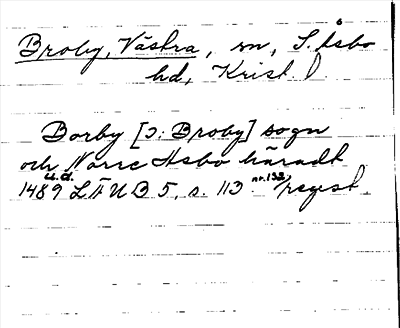 Broby, Västra, sn, S. Åsbo
hd, Krist. l.
Borby [ɔ: Broby] sogn
och Nørre Asbo häradt
u.d.
1489 LÄUB 5, s. 113 nr. 132 regest